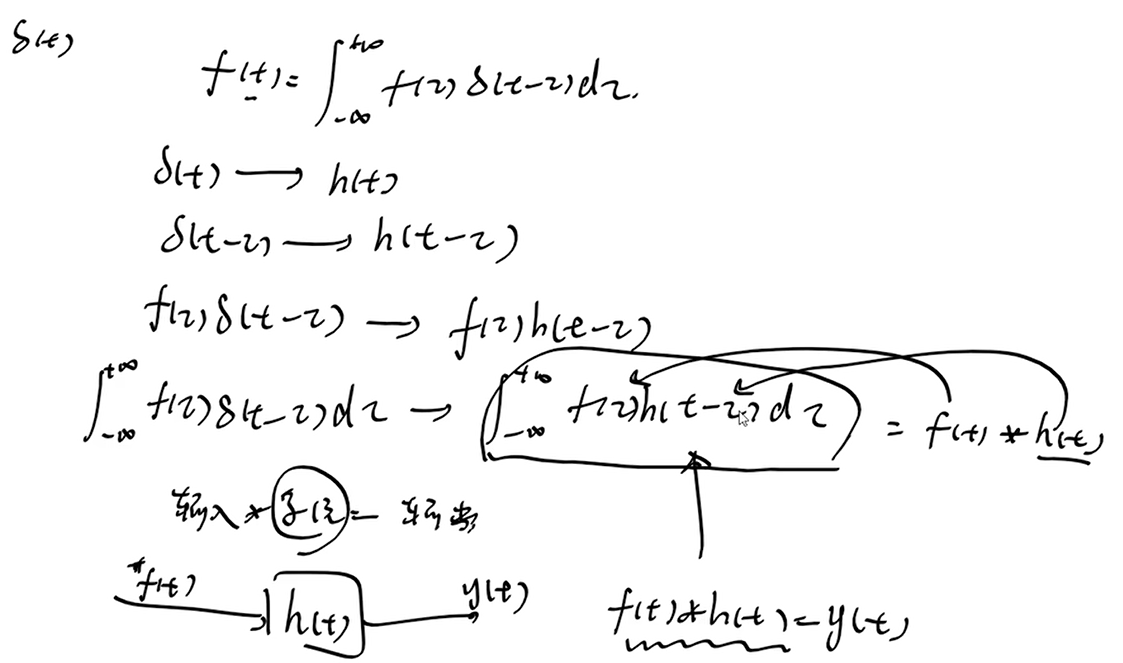 δ(t)
f(t) = ∫_{-∞}^{+∞} f(τ) δ(t-τ) dτ.
δ(t) → h(t)
δ(t-τ) → h(t-τ)
f(τ) δ(t-τ) → f(τ) h(t-τ)
∫_{-∞}^{+∞} f(τ) δ(t-τ) dτ → ∫_{-∞}^{+∞} f(τ) h(t-τ) dτ = f(t) * h(t)
输入 * 系统 = 输出
f(t) → h(t) → y(t)
f(t) * h(t) = y(t)